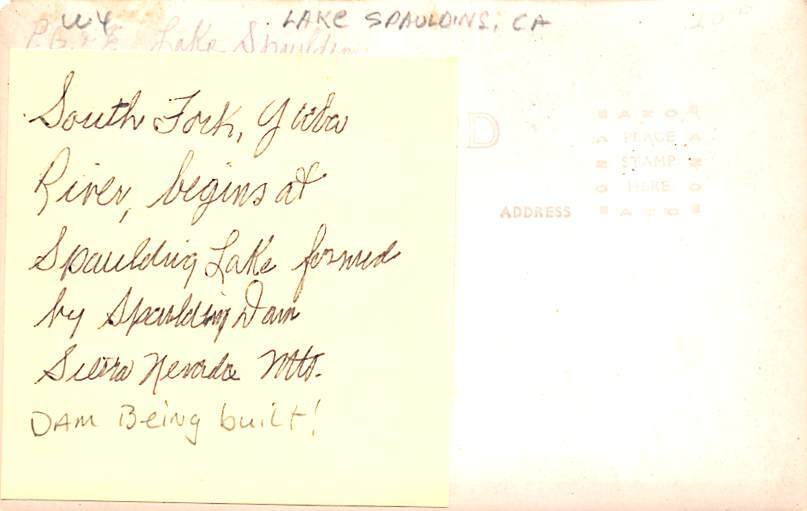 W4
LAKE SPAULDING, CA
20
P.G.&E. Lake Spaulding
South Fork, Yuba
River, begins at
Spaulding Lake formed
by Spaulding Dam
Sierra Nevada Mts.
DAM Being built!
D
AZO
PLACE
STAMP
HERE
AZO
ADDRESS